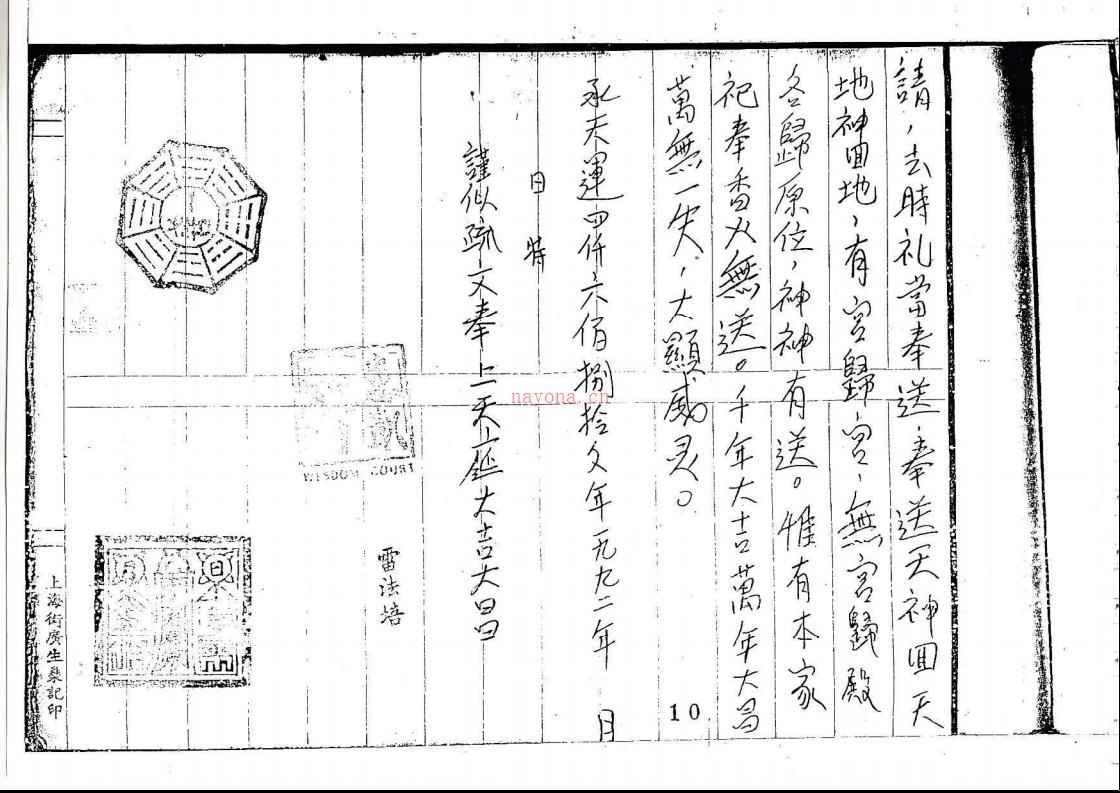 請，去時礼當奉送，奉送天神回天
地神回地，有宮歸宮，無宮歸殿
各歸原位，神神有送。惟有本家
祀奉香火無送。千年大吉萬年大昌
萬無一失，大顯威灵。
承天運四仟六佰捌拾 年一九九二年 月
日 時
謹似疏文奉上天庭大吉大昌
雷法培
10
WISDOM COURT
上海街廣生 記印
nayona.cn